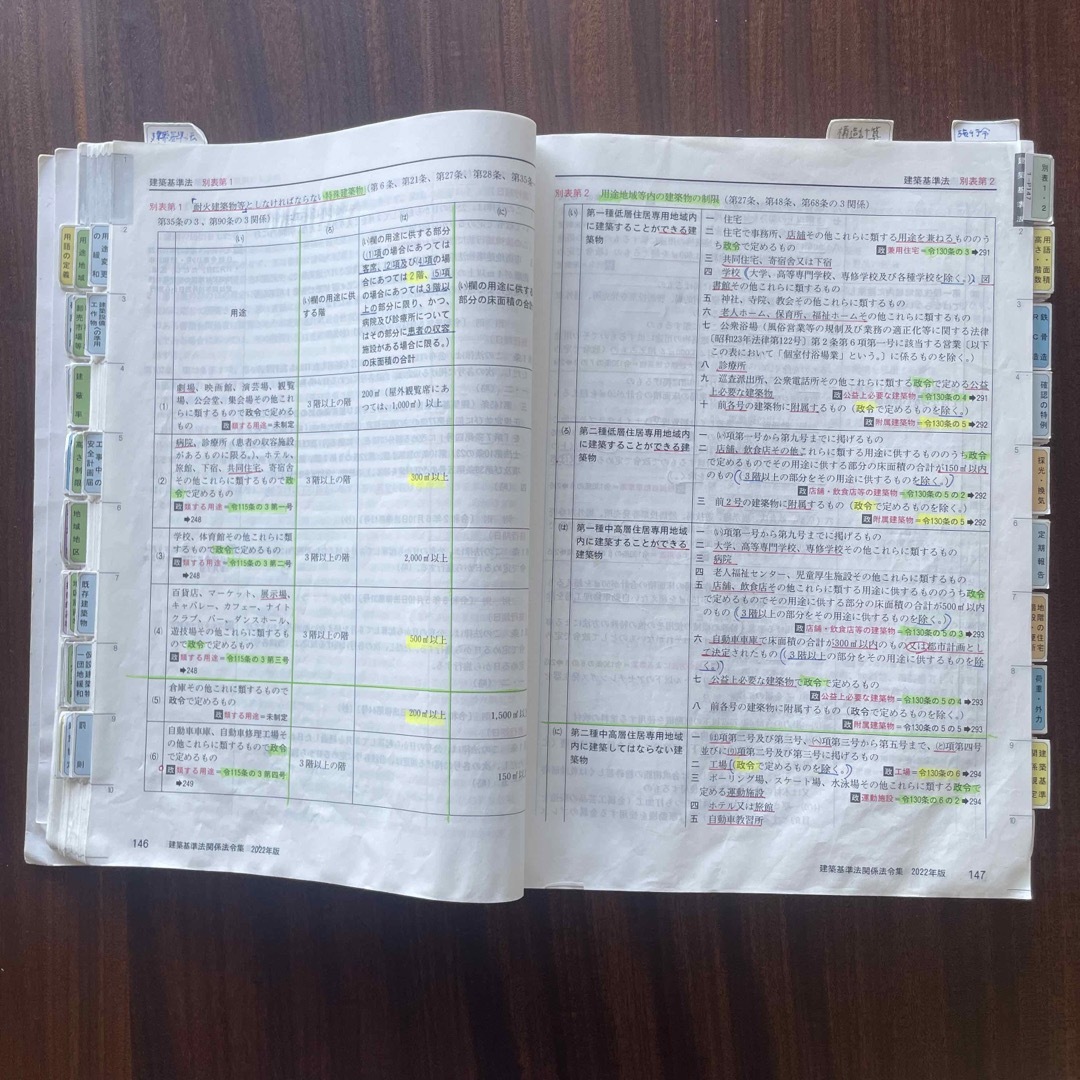 建築基準法　別表第1
別表第1　耐火建築物等としなければならない特殊建築物（第6条、第21条、第27条、第28条、第35条、
第35条の3、第90条の3関係）
(い)
(ろ)
(は)
(に)
用途
(い)欄の用途に供す
る階
(い)欄の用途に供する部分
((1)項の場合にあつては
客席、(2)項及び(4)項の場
合にあつては2階、(5)項
の場合にあつては3階以
上の部分に限り、かつ、
病院及び診療所について
はその部分に患者の収容
施設がある場合に限る。)
の床面積の合計
(い)欄の用途に供する
部分の床面積の合計
(1)
劇場、映画館、演芸場、観覧
場、公会堂、集会場その他これ
らに類するもので政令で定める
もの
政 類する用途＝未制定
3階以上の階
200㎡（屋外観覧席にあ
つては、1,000㎡）以上
(2)
病院、診療所（患者の収容施設
があるものに限る。）、ホテル、
旅館、下宿、共同住宅、寄宿舎
その他これらに類するもので政
令で定めるもの
政 類する用途＝令115条の3第一号
➡248
3階以上の階
300㎡以上
(3)
学校、体育館その他これらに類
するもので政令で定めるもの
政 類する用途＝令115条の3第二号
➡248
3階以上の階
2,000㎡以上
(4)
百貨店、マーケット、展示場、
キャバレー、カフェー、ナイト
クラブ、バー、ダンスホール、
遊技場その他これらに類するも
ので政令で定めるもの
政 類する用途＝令115条の3第三号
➡248
3階以上の階
500㎡以上
(5)
倉庫その他これに類するもので
政令で定めるもの
政 類する用途＝未制定
200㎡以上
1,500㎡以
(6)
自動車車庫、自動車修理工場そ
の他これらに類するもので政令
で定めるもの
政 類する用途＝令115条の3第四号
➡249
3階以上の階
150㎡以
146　建築基準法関係法令集　2022年版
建築基準法　別表第2
別表第2　用途地域等内の建築物の制限（第27条、第48条、第68条の3関係）
(い)
第一種低層住居専用地域内
に建築することができる建
築物
一　住宅
二　住宅で事務所、店舗その他これらに類する用途を兼ねるもののう
ち政令で定めるもの
政 兼用住宅＝令130条の3➡291
三　共同住宅、寄宿舎又は下宿
四　学校（大学、高等専門学校、専修学校及び各種学校を除く。）、図
書館その他これらに類するもの
五　神社、寺院、教会その他これらに類するもの
六　老人ホーム、保育所、福祉ホームその他これらに類するもの
七　公衆浴場（風俗営業等の規制及び業務の適正化等に関する法律
（昭和23年法律第122号）第2条第6項第一号に該当する営業（以下
この表において「個室付浴場業」という。）に係るものを除く。）
八　診療所
九　巡査派出所、公衆電話所その他これらに類する政令で定める公益
上必要な建築物
政 公益上必要な建築物＝令130条の4➡291
十　前各号の建築物に附属するもの（政令で定めるものを除く。）
政 附属建築物＝令130条の5➡292
(ろ)
第二種低層住居専用地域内
に建築することができる建
築物
一　(い)項第一号から第九号までに掲げるもの
二　店舗、飲食店その他これらに類する用途に供するもののうち政令
で定めるものでその用途に供する部分の床面積の合計が150㎡以内
のもの（3階以上の部分をその用途に供するものを除く。）
政 店舗・飲食店等の建築物＝令130条の5の2➡292
三　前2号の建築物に附属するもの（政令で定めるものを除く。）
政 附属建築物＝令130条の5➡292
(は)
第一種中高層住居専用地域
内に建築することができる
建築物
一　(い)項第一号から第九号までに掲げるもの
二　大学、高等専門学校、専修学校その他これらに類するもの
三　病院
四　老人福祉センター、児童厚生施設その他これらに類するもの
五　店舗、飲食店その他これらに類する用途に供するもののうち政令
で定めるものでその用途に供する部分の床面積の合計が500㎡以内
のもの（3階以上の部分をその用途に供するものを除く。）
政 店舗・飲食店等の建築物＝令130条の5の3➡293
六　自動車車庫で床面積の合計が300㎡以内のもの又は都市計画とし
て決定されたもの（3階以上の部分をその用途に供するものを除
く。）
七　公益上必要な建築物で政令で定めるもの
政 公益上必要な建築物＝令130条の5の4➡293
八　前各号の建築物に附属するもの（政令で定めるものを除く。）
政 附属建築物＝令130条の5の5➡293
(に)
第二種中高層住居専用地域
内に建築してはならない建
築物
一　(ほ)項第二号及び第三号、(へ)項第三号から第五号まで、(と)項第四号
並びに(り)項第二号及び第三号に掲げるもの
二　工場（政令で定めるものを除く。）
政 工場＝令130条の6➡294
三　ボーリング場、スケート場、水泳場その他これらに類する政令で
定める運動施設
政 運動施設＝令130条の6の2➡294
四　ホテル又は旅館
五　自動車教習所
建築基準法関係法令集　2022年版　147
構造計算
用語の定義
用途地域
用途変更の緩和
卸売市場等
建蔽率
高さ制限
工事中の安全計画届
地域地区
既存建築物
一団地緩和
罰則
別表1・2
用語・面積・高さ・階数
鉄骨造
RC造
確認の特例
採光・換気
定期報告
荷重・外力